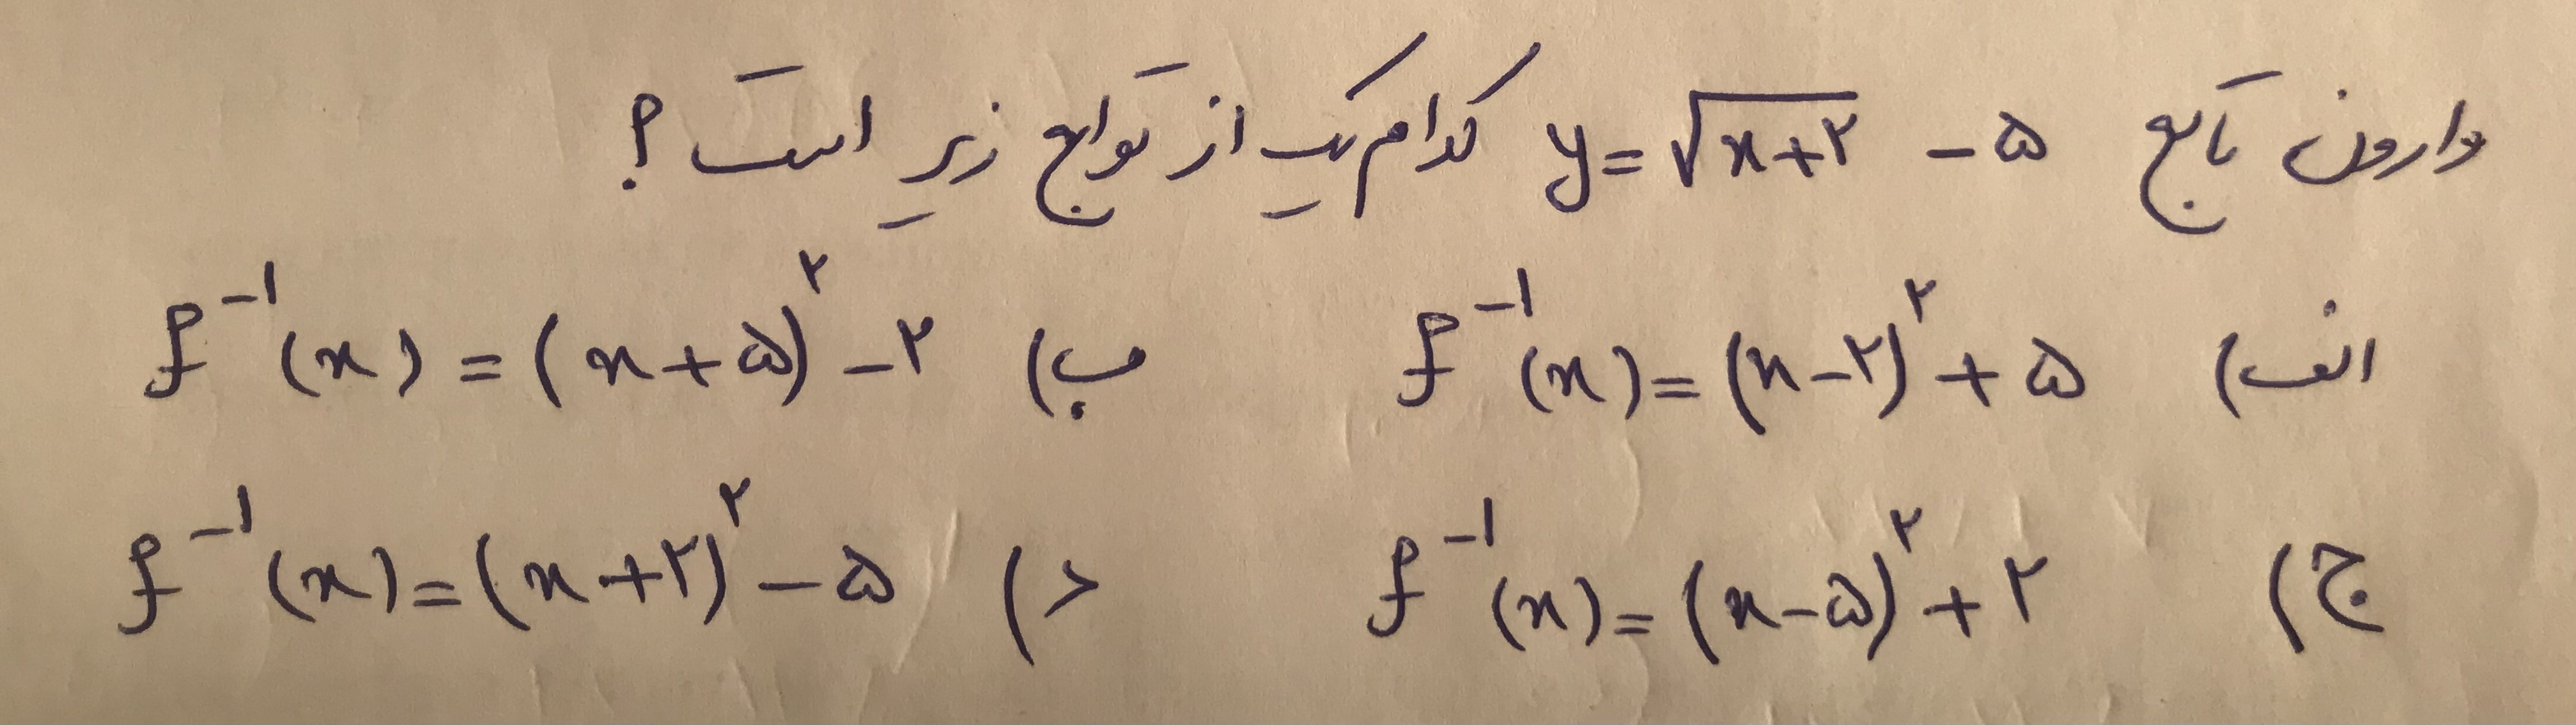 وارون تابع y = √(x+۲) − ۵ کدام یک از توابع زیر است ؟
الف) f⁻¹(x) = (x−۲)² + ۵ ب) f⁻¹(x) = (x+۵)² − ۲
ج) f⁻¹(x) = (x−۵)² + ۲ د) f⁻¹(x) = (x+۲)² − ۵